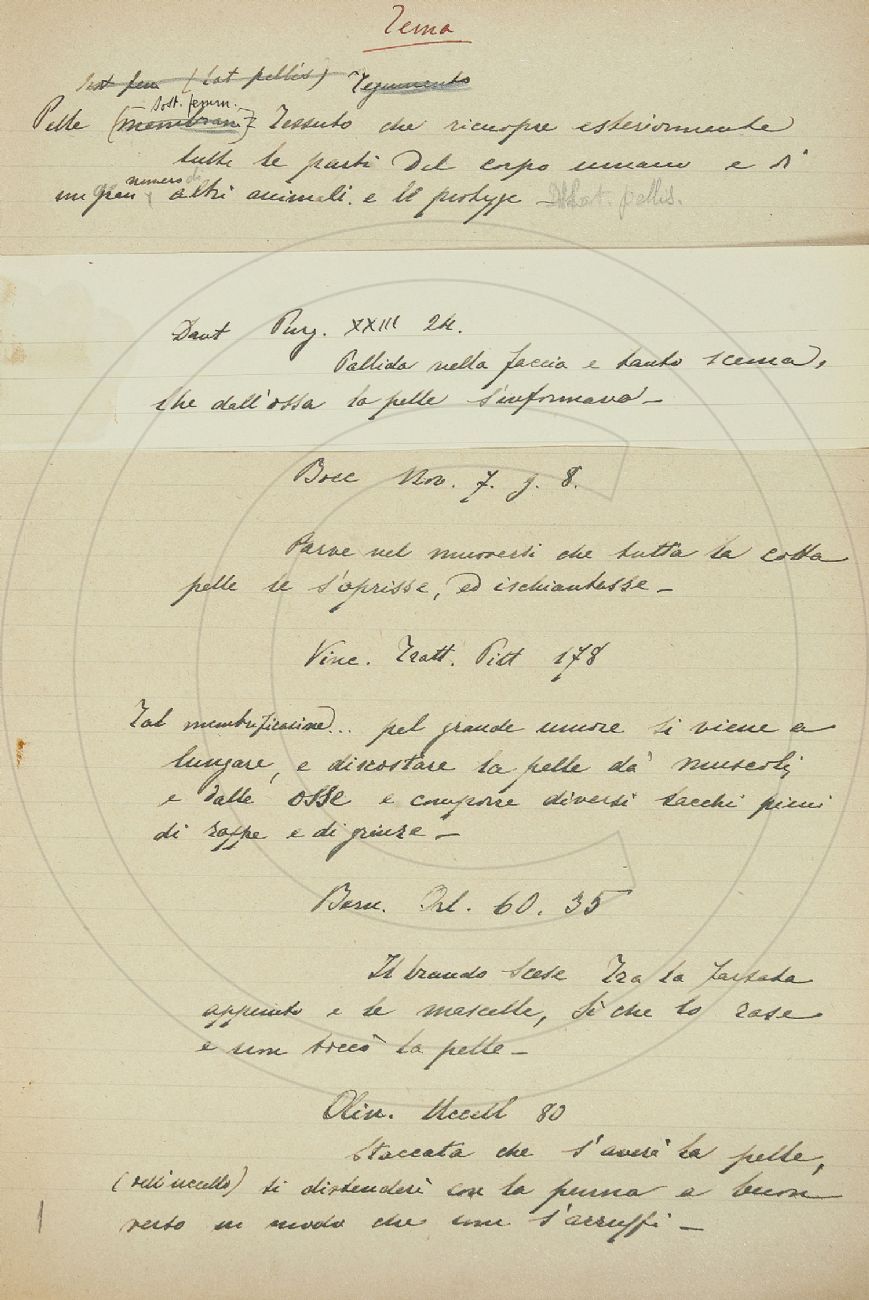 Tema
Sost. fem. (Lat pellis) Tegumento
Pelle (membrana) Sost. femm. = Tessuto che ricuopre esteriormente
tutte le parti del corpo umano e d'
un gran numero di altri animali. e li protegge — Dal Lat. pellis.
Dant Purg. XXIII 24.
Pallida nella faccia e tanto scema,
Che dall'ossa la pelle s'informava —
Bocc Nov. 7. g. 8.
Parve nel muoversi che tutta la cotta
pelle le s'aprisse, ed ischiantasse —
Vinc. Tratt. Pitt 178
Tal membrificazione... pel grande umore si viene a
lungare, e discostare la pelle da' muscoli,
e dalle osse e comporre diversi sacchi pieni
di zoppe e di grinze —
Bern. Orl. 60. 35
Il brando scese Tra la farsata
appunto e le mascelle, Sì che lo rase
e non toccò la pelle —
Olin. Uccell 80
Staccata che s'averà la pelle,
(dell'uccello) si distenderà con la penna a buon
verso in modo che non s'arruffi —
1